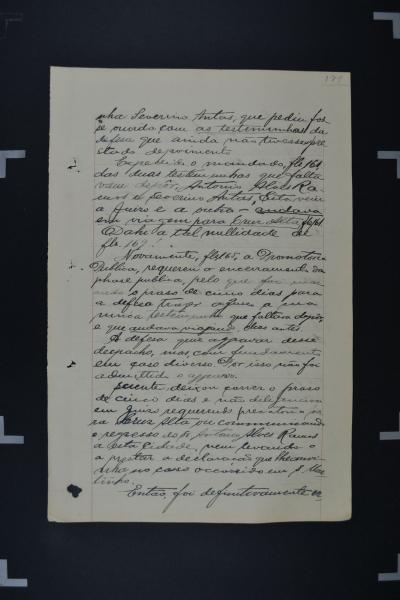 nha Severino Antas, que pediu fos
se ouvida com as testemunhas da
defesa que ainda não tivessem pre
stado depoimento.
Expedido o mandado, fls 161
das duas testemunhas que falta
vam depôr, Antonio Alves Ra
mos e Severino Antas, Esta veiu
a Juizo e a outra "andava
em viagem para Cruz Alta" fls 161
Dahi a tal nullidade de
fls 169!
Novamente, fls 165, a Promotoria
Publica, requereu o encerramento da
phase publica, pelo que foi
o praso de cinco dias para
a defesa trazer a
unica testemunha que faltava depôr,
e que andava viajando, dias antes.
A defesa quiz aggravar desse
despacho, mas, com fundamento
em caso diverso. Por isso não foi
admittido o aggravo.
deixou correr o praso
de cinco dias e não diligenciou
em Juizo requerendo precatoria pa
ra Cruz Alta ou communicando
o regresso do Antonio Alves Ramos
a esta cidade, nem levando-o
a prestar a declaração que
no caso occorrido em S. Mar
tinho.
Então, foi definitivamente en